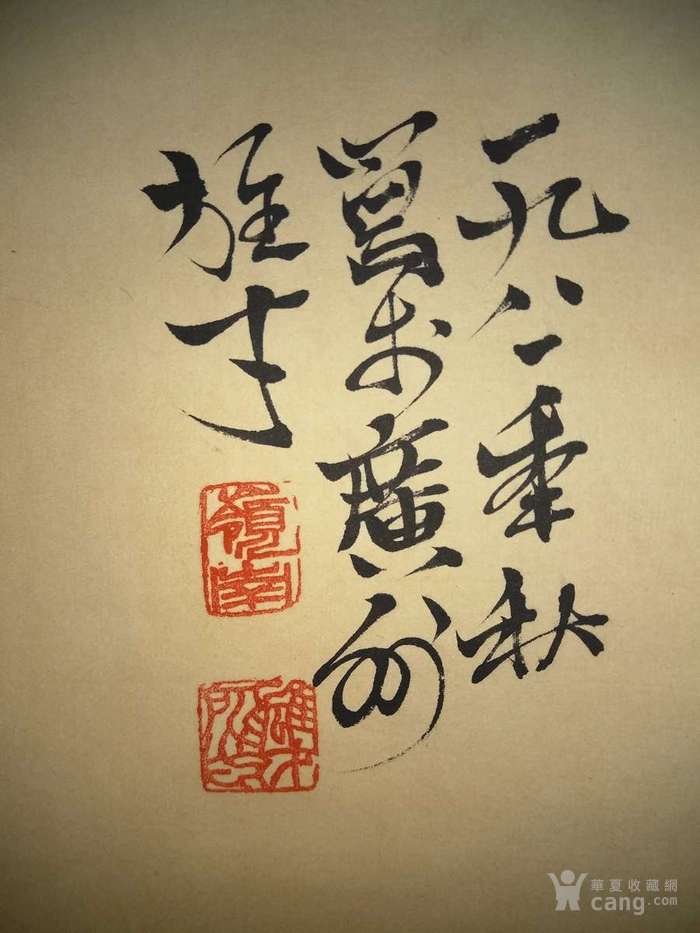 一九八一年秋
寫於廣州
雄才
嶺南
雄才
華夏收藏網
cang.com